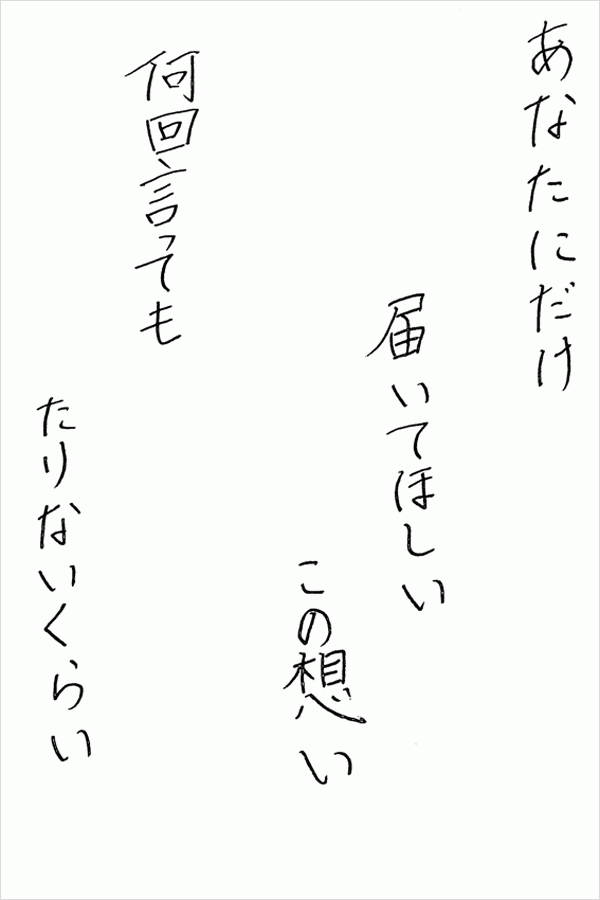 あなたにだけ
届いてほしい
この想い
何回言っても
たりないくらい